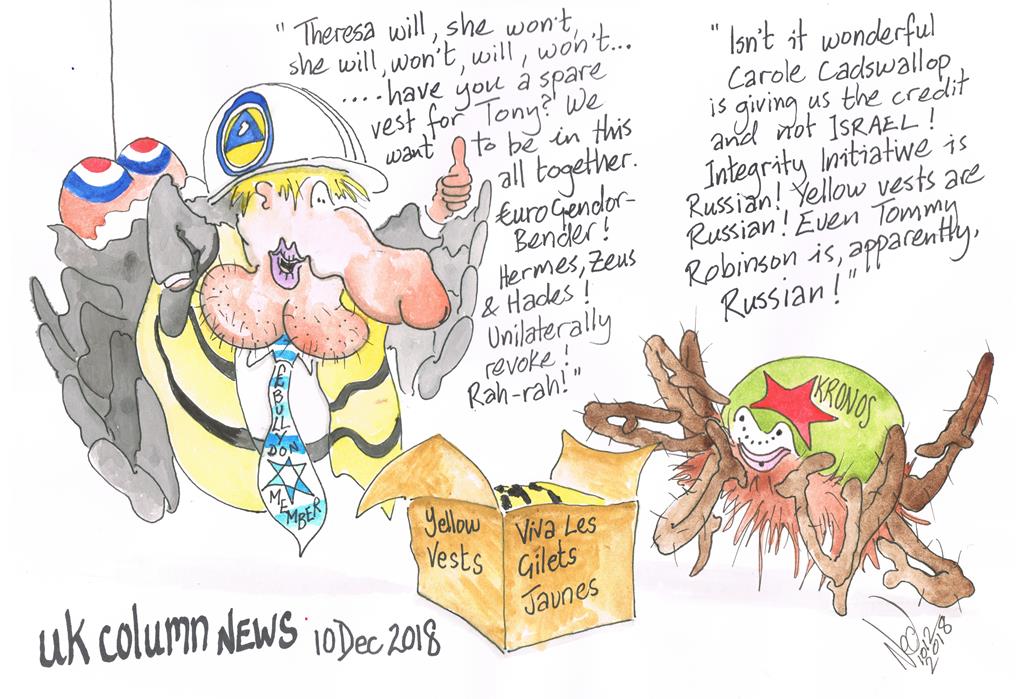 " Theresa will, she won't,
she will, won't, will, won't...
....have you a spare
vest for Tony? We
want to be in this
all together.
€uroGendor-
Bender!
Hermes, Zeus
& Hades!
Unilaterally
revoke!
Rah-rah!"
"Isn't it wonderful
Carole Cadswallop
is giving us the credit
and not ISRAEL!
Integrity Initiative is
Russian! Yellow vests are
Russian! Even Tommy
Robinson is, apparently,
Russian!"
KRONOS
BULLY
DON
MEMBER
Yellow
Vests
Viva Les
Gilets
Jaunes
UK COLUMN NEWS 10 Dec 2018